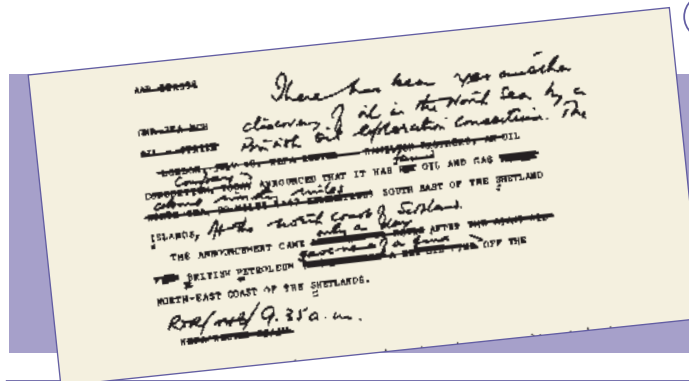 There has been yet another
discovery of oil in the North Sea by a
British oil exploration consortium. The
LONDON, JULY
company TODAY ANNOUNCED THAT IT HAS found OIL AND GAS
about ninety miles SOUTH EAST OF THE SHETLAND
ISLANDS, off the north coast of Scotland.
THE ANNOUNCEMENT CAME only a day AFTER
BRITISH PETROLEUM gave news of a find OFF THE
NORTH-EAST COAST OF THE SHETLANDS.
9.35 a.m.